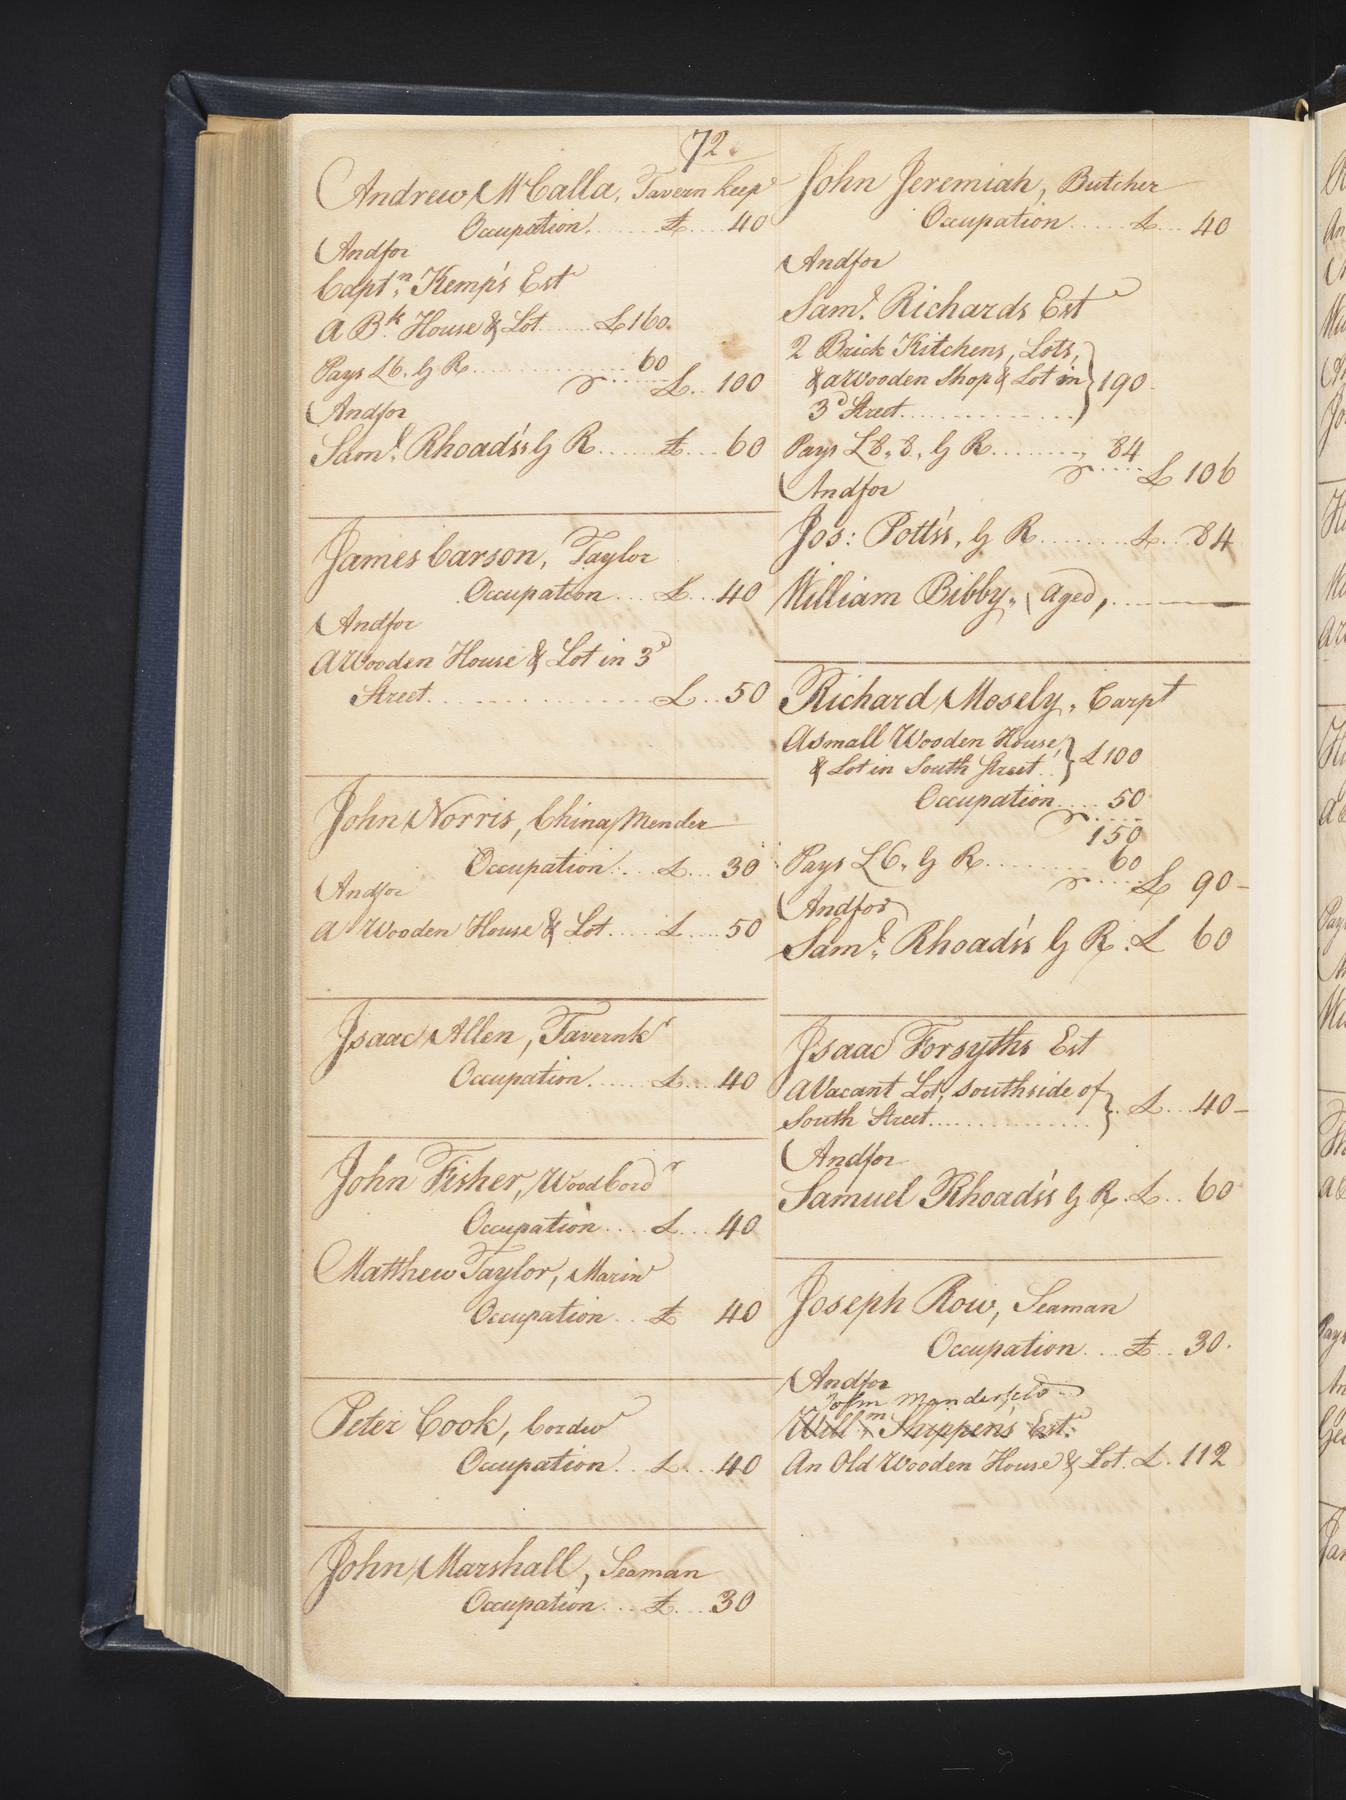 72.
Andrew McCalla, Tavern keepr
Occupation. ...... £ .... 40
Andfor
Captn. Kemp's Est
A Bk. House & Lot ...... £160.
Pays £6. G R ............... 60
£.. 100
Andfor
Saml. Rhoads's G R ...... £ ... 60
James Carson, Taylor
Occupation ... £ .. 40
Andfor
A Wooden House & Lot in 3d
Street ............... £ .. 50
John Norris, China Mender
Occupation ... £ ... 30
Andfor
A Wooden House & Lot .... £ .... 50
Isaac Allen, Tavernkr
Occupation ...... £ .... 40
John Fisher, Wood Cordr
Occupation .... £ ... 40
Matthew Taylor, Marinr
Occupation ... £ 40
Peter Cook, Cordwr
Occupation ... £ ... 40
John Marshall, Seaman
Occupation .... £ ... 30
John Jeremiah, Butcher
Occupation ...... £ ... 40
Andfor
Saml. Richards Est
2 Brick Kitchens, Lots,
& a Wooden Shop & Lot in } 190
3d Street ...............
Pays £8,,8,, G R ........ 84
£ 106
Andfor
Jos: Potts's, G R ........ £ .. 84
William Bibby,, Aged, .....
Richard Mosely,, Carpt
A small Wooden House } £100
& Lot in South Street ..
Occupation .... 50
150
Pays £6,, G R .......... 60
£ 90
Andfor
Saml. Rhoads's G R . £ 60
Isaac Forsyths Est
A Vacant Lot, southside of } . £ ... 40
South Street ...............
Andfor
Samuel Rhoads's G R . £ .. 60
Joseph Row, Seaman
Occupation ... £ .. 30.
Andfor
John Manderfeld
Willm Shippens Est.
An Old Wooden House & Lot . £ . 112